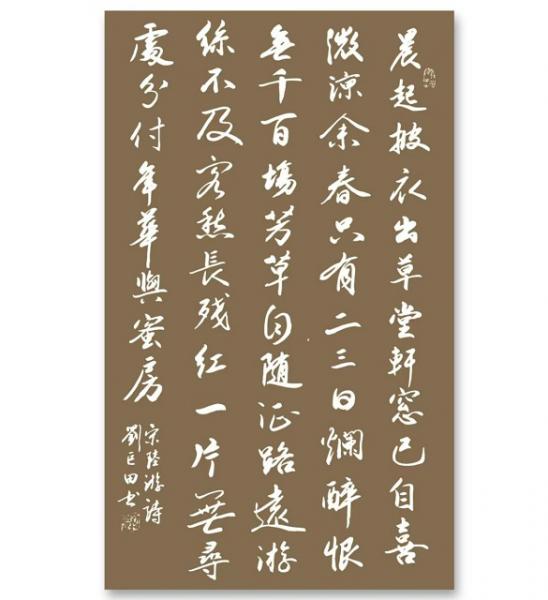 晨起披衣出草堂軒窓已自喜
微涼余春只有二三日爛醉恨
無千百場芳草自随征路遠游
絲不及客愁長残紅一片無尋
處分付年華與蜜房
宋陸游詩
劉巨田书